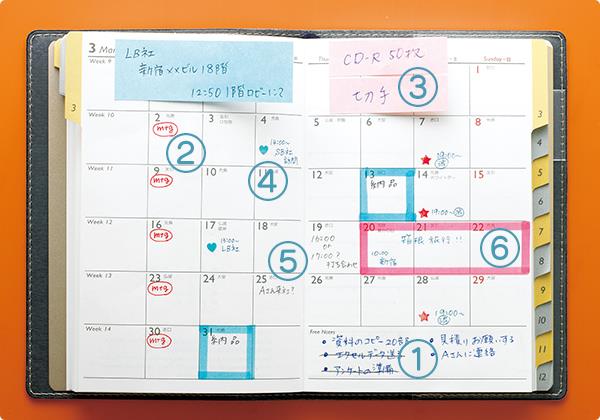 3 Mar
LB社
新宿××ビル 18階
12:50 1階ロビーにて
CD-R 50枚
切手
③
Week 9
Sunday・日
1
3
Week 10
2
mtg
②
3
4
14:00~
SB社
訪問
5
6
7
8
Week 11
9
mtg
10
11
④
12
13
納品
14
ホワイトデー
19:00~
15
Week 12
16
mtg
17
15:00~
LB社
18
⑤
19
16:00
or
17:00?
打ち合わせ
20
10:00
新宿
21
箱根旅行!!
22
⑥
Week 13
23
mtg
24
25
Aさん来社?
26
27
28
19:00~
29
Week 14
30
mtg
31
納品
Free Notes
・資料のコピー20部
・エクセルデータ送る
・アンケートの準備
①
・見積りお願いする
・Aさんに連絡
4
5
6
7
8
9
10
11
12